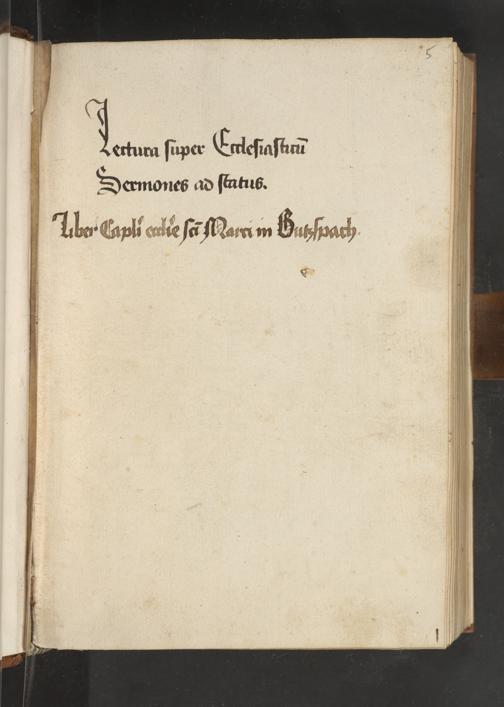 5
Lectura super Ecclesiasticū
Sermones ad status.
Liber Capli eccłie scī Marci in Butzspach.